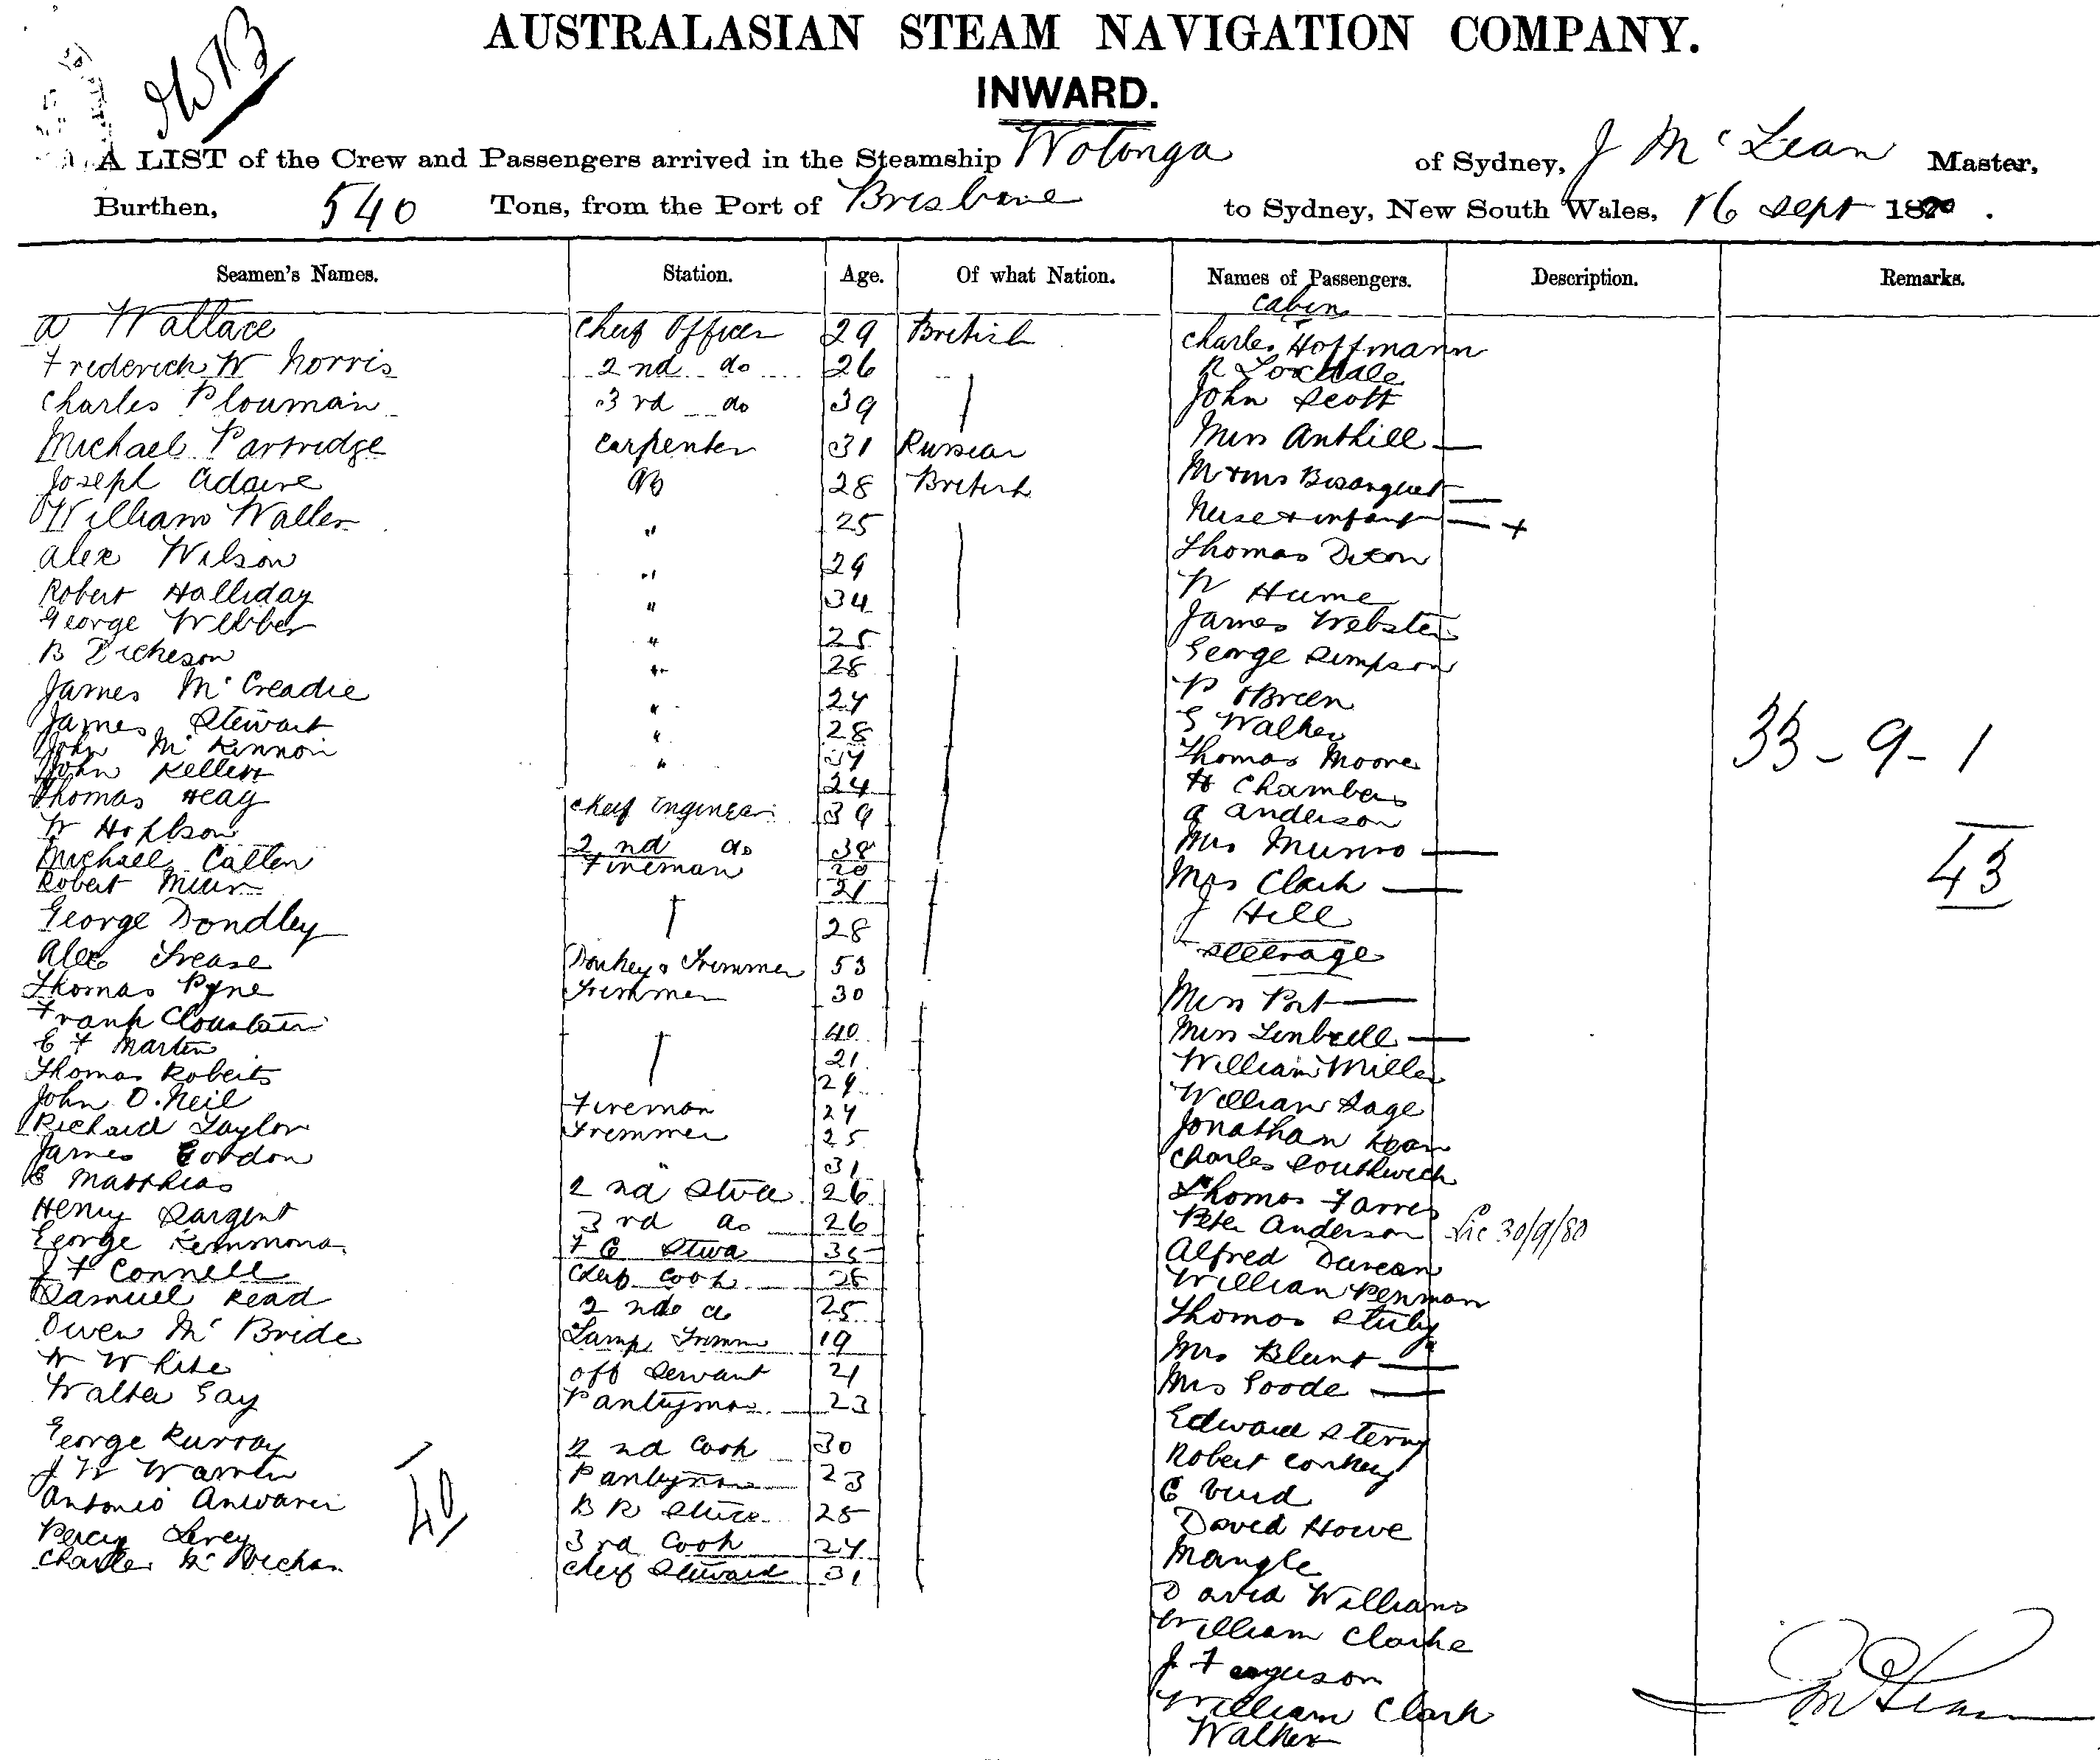 AUSTRALASIAN STEAM NAVIGATION COMPANY.
INWARD.
A LIST of the Crew and Passengers arrived in the Steamship Wotonga of Sydney, J McLean Master,
Burthen, 540 Tons, from the Port of Brisbane to Sydney, New South Wales, 16 Sept 1880.
Seamen's Names. Station. Age. Of what Nation. Names of Passengers. Description. Remarks.
Cabin
A Wallace Chief Officer 29 British Charles Hoffmann
Frederick W Norris 2nd do 26 R Loxdale
Charles Plouman 3rd do 39 John Scott
Michael Partridge Carpenter 31 Russian Miss Anthill
Joseph Adaire AB 28 British Mr & Mrs Bosanquet
William Waller " 25 Nurse & infant +
Alex Wilson " 29 Thomas Dixon
Robert Halliday " 34 W Hume
George Webber " 25 James Webster
B Dickeson " 28 George Simpson
James McCreadie " 24 P OBrien
James Stewart " 28 S Walker
John McKinnon " 34 Thomas Moore
John Kellett 24 H Chambers
Thomas Heag Chief Engineer 39 A Anderson
W Hopson 2nd do 38 Mrs Munro
Michael Callen Fireman 20 Mrs Clark
Robert Muir 21 J Hill
George Dondley 28 Steerage
Alex Frease Donkey & Trimmer 53
Thomas Pyne Trimmer 30 Miss Port
Frank Clouston 40 Miss
E F Martin 21 William Miller
Thomas Roberts 29 William Sage
John O.Neil Fireman 24 Jonathan
Richard Taylor Trimmer 25 Charles Southwick
James Gordon " 31 Thomas
E Matthias 2nd Stwd 26 Peter Anderson Lic 30/9/80
Henry Sargent 3rd do 26 Alfred Duncan
George Kemmona F C Stwd 35 William Penman
J F Connell Chief Cook 28 Thomas
Samuel Read 2nd do 25 Mrs Blunt
Owen McBride Lamp Trimmer 19 Mrs Goode
W White Off Servant 21 Edward Sterny
Walter Gay Pantryman 23 Robert Conkey
George Murray 2nd Cook 30 C
J W Warren Pantryman 23 David Howe
Antonio B R Stwd 25 Mangle
Percy Levey 3rd Cook 24 David Williams
Charles Chief Steward 31 William Clarke
J Ferguson
William Clark
Walker
40
33-9-1
43
J McLean